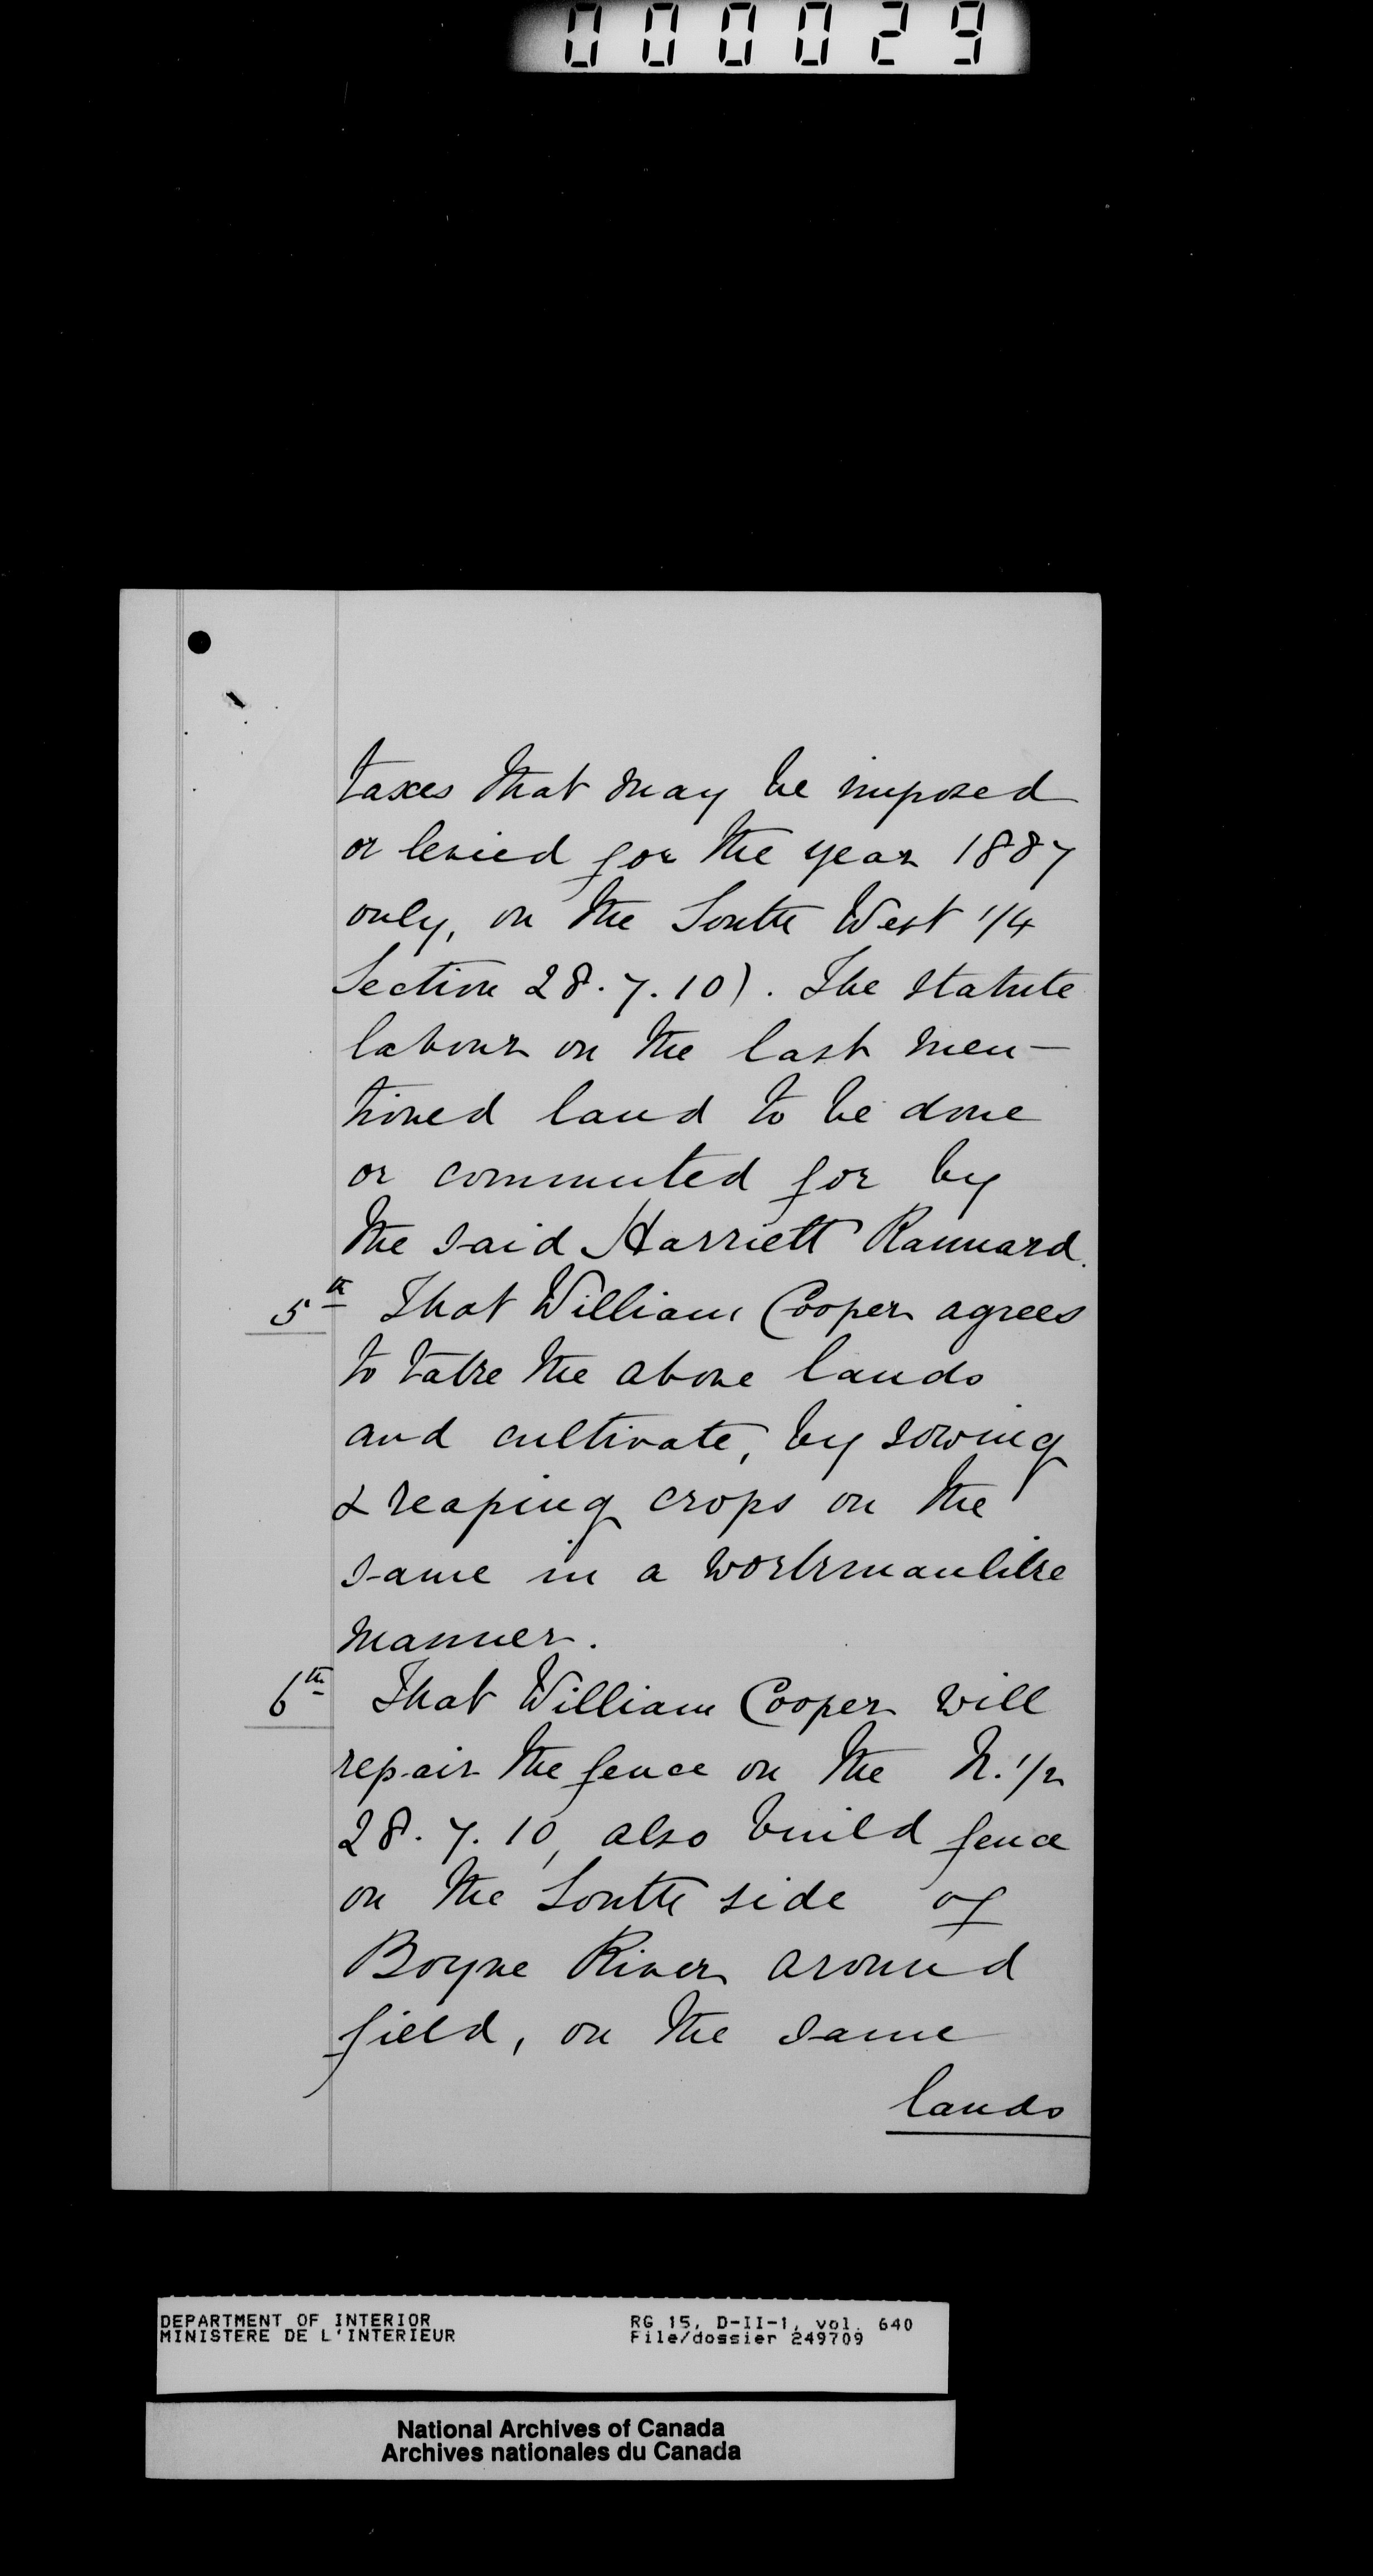 000029
taxes that may be imposed
or levied for the year 1887
only, on the South West 1/4
Section 28.7.10). The statute
labour on the last men-
tioned land to be done
or commuted for by
the said Harriett Rannard.
5th That William Cooper agrees
to take the above lands
and cultivate, by sowing
& reaping crops on the
same in a workmanlike
manner.
6th That William Cooper will
repair the fence on the N. 1/2
28.7.10, also build fence
on the South side of
Boyne River around
field, on the same
lands
DEPARTMENT OF INTERIOR RG 15, D-II-1, vol. 640
MINISTERE DE L'INTERIEUR File/dossier 249709
National Archives of Canada
Archives nationales du Canada